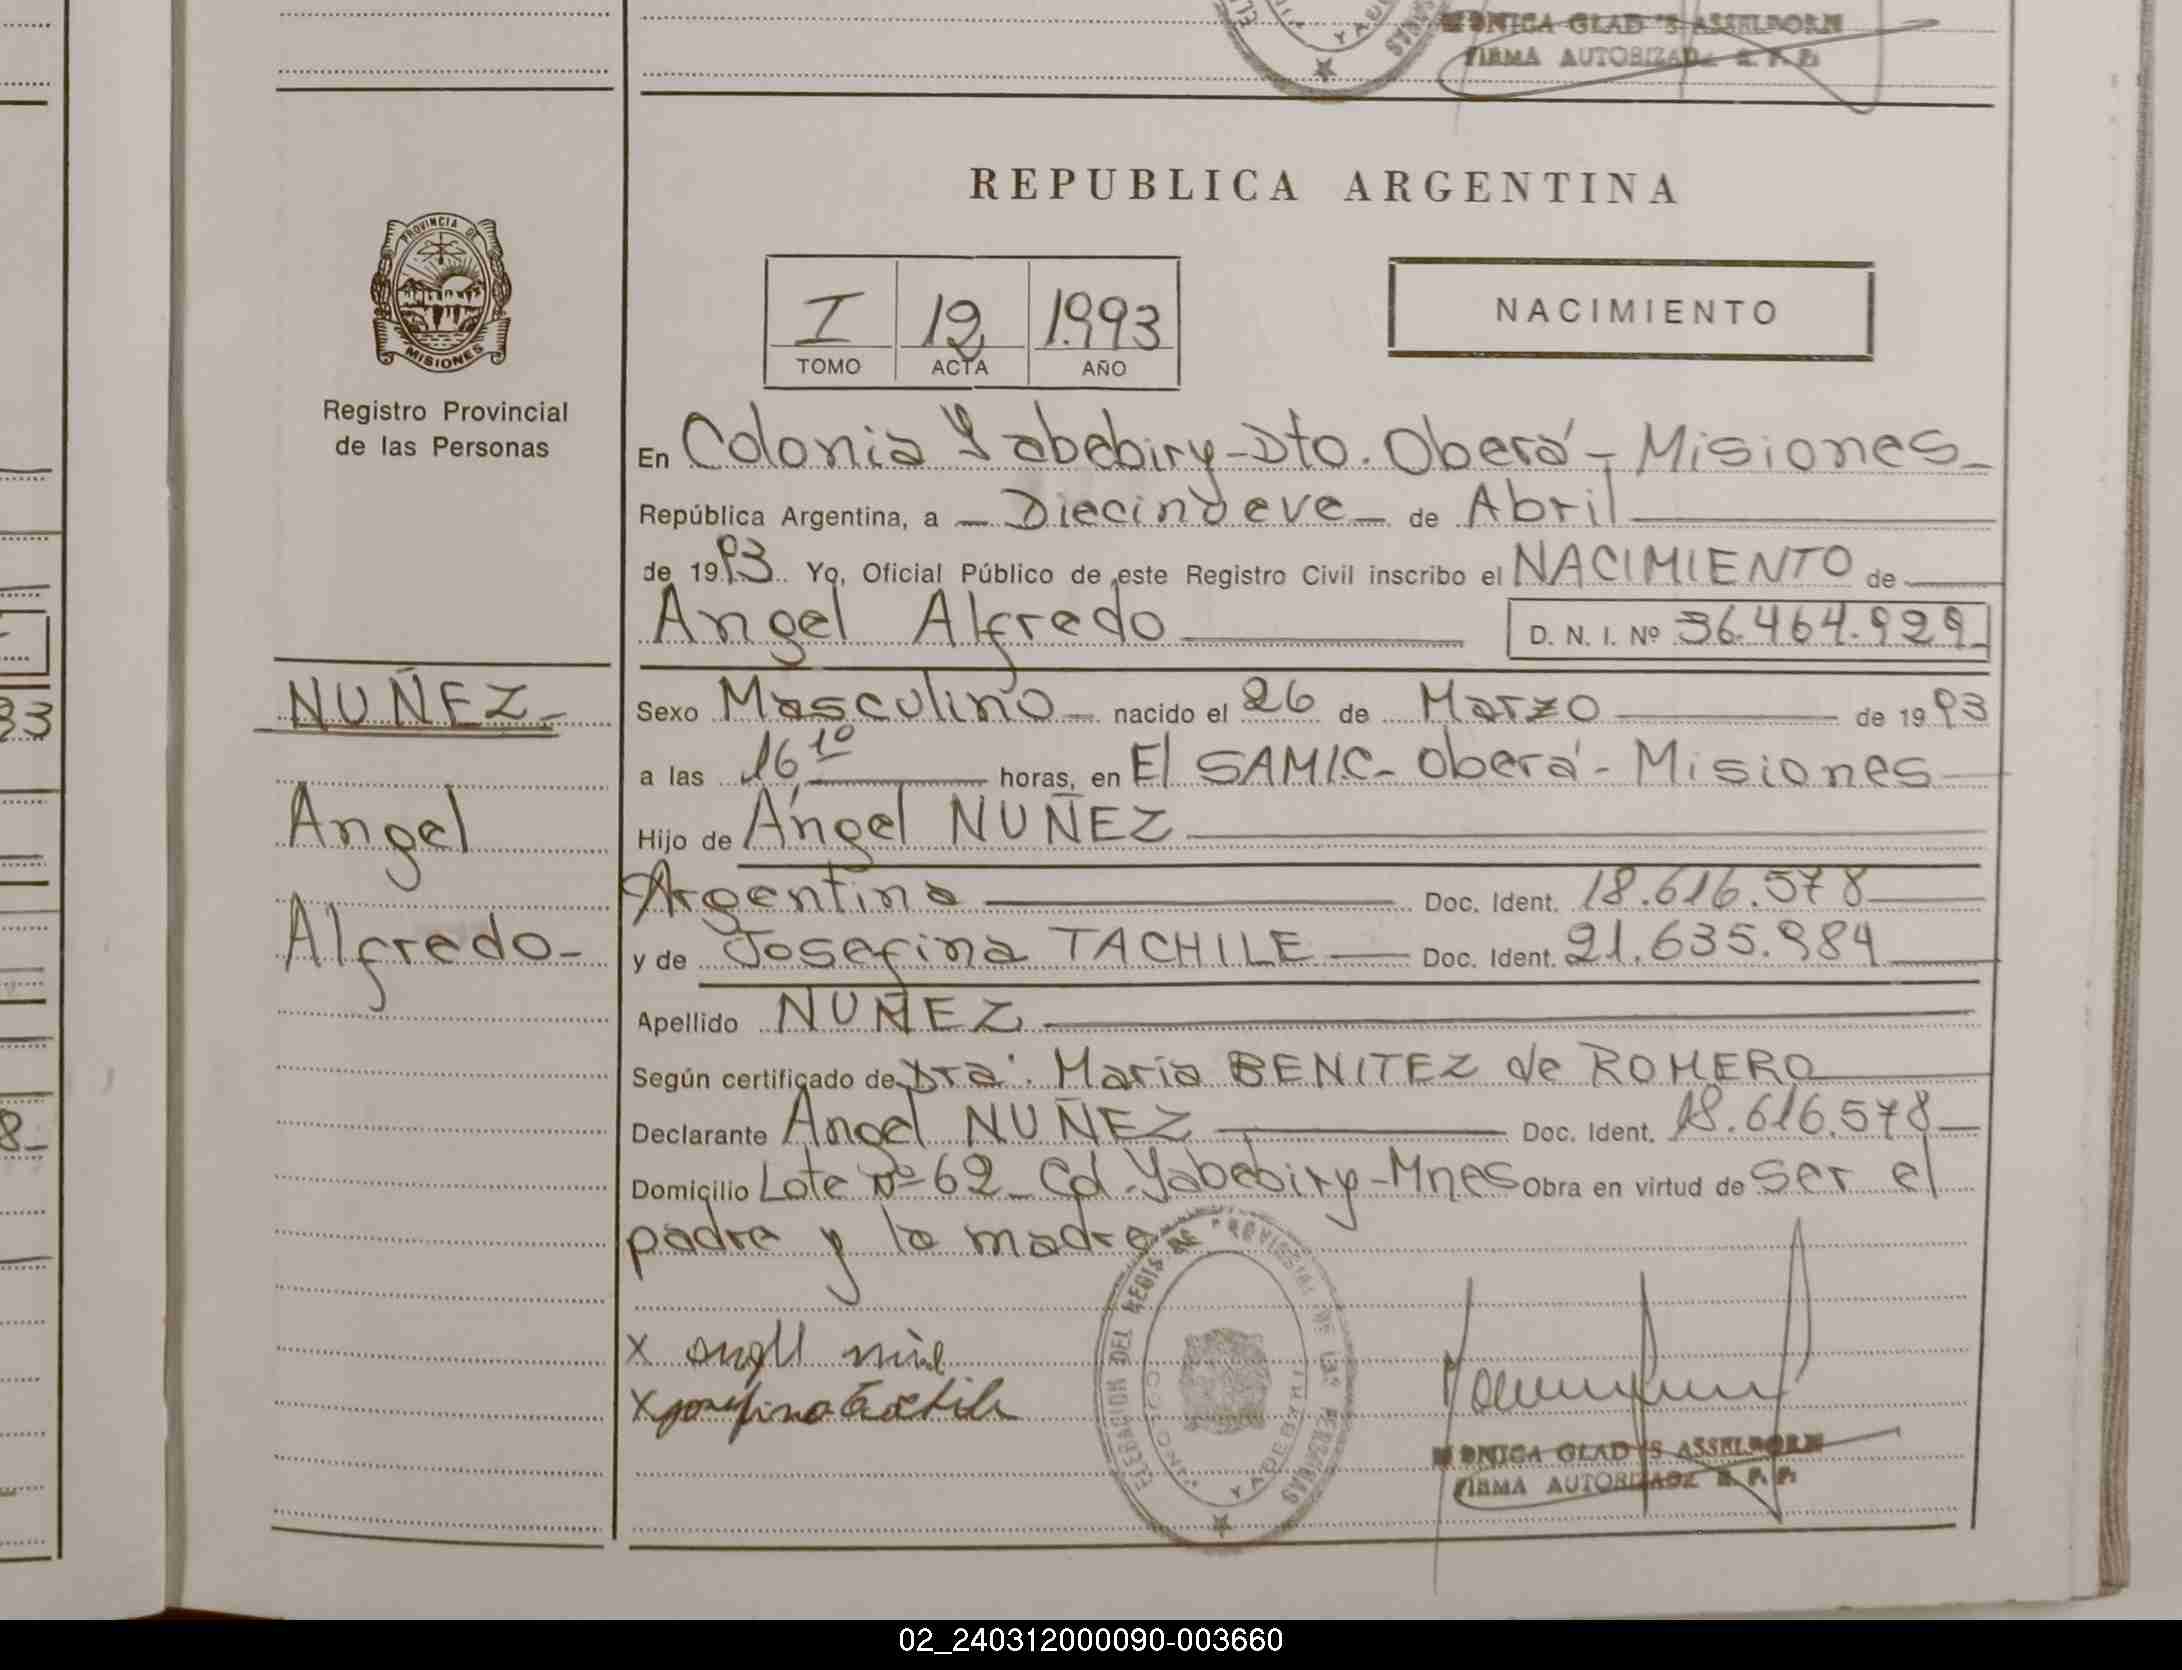 MONICA GLAD'S ASSELBORN
FIRMA AUTORIZADA R. P. P.
REPUBLICA ARGENTINA
PROVINCIA DE
MISIONES
Registro Provincial
de las Personas
I 12 1.993
TOMO ACTA AÑO
NACIMIENTO
En Colonia Yabebiry-Dto. Oberá - Misiones
República Argentina, a Diecinueve de Abril
de 1993. Yo, Oficial Público de este Registro Civil inscribo el NACIMIENTO de
Angel Alfredo D. N. I. Nº 36.464.929
NUÑEZ
Angel
Alfredo
Sexo Masculino nacido el 26 de Marzo de 1993
a las 16 10 horas, en El SAMIC- Oberá - Misiones
Hijo de Angel NUÑEZ
Argentino Doc. Ident. 18.616.578
y de Josefina TACHILE Doc. Ident. 21.635.984
Apellido NUÑEZ
Según certificado de Dra. Maria BENITEZ de ROMERO
Declarante Angel NUÑEZ Doc. Ident. 18.616.578
Domicilio Lote Nº 62 Col. Yabebiry-Mnes Obra en virtud de ser el
padre y la madre
X
X Josefina Tachile
DELEGACION DEL REGISTRO PROVINCIAL DE LAS PERSONAS
YABEBIRI
MONICA GLAD'S ASSELBORN
FIRMA AUTORIZADA R. P. P.
02_240312000090-003660